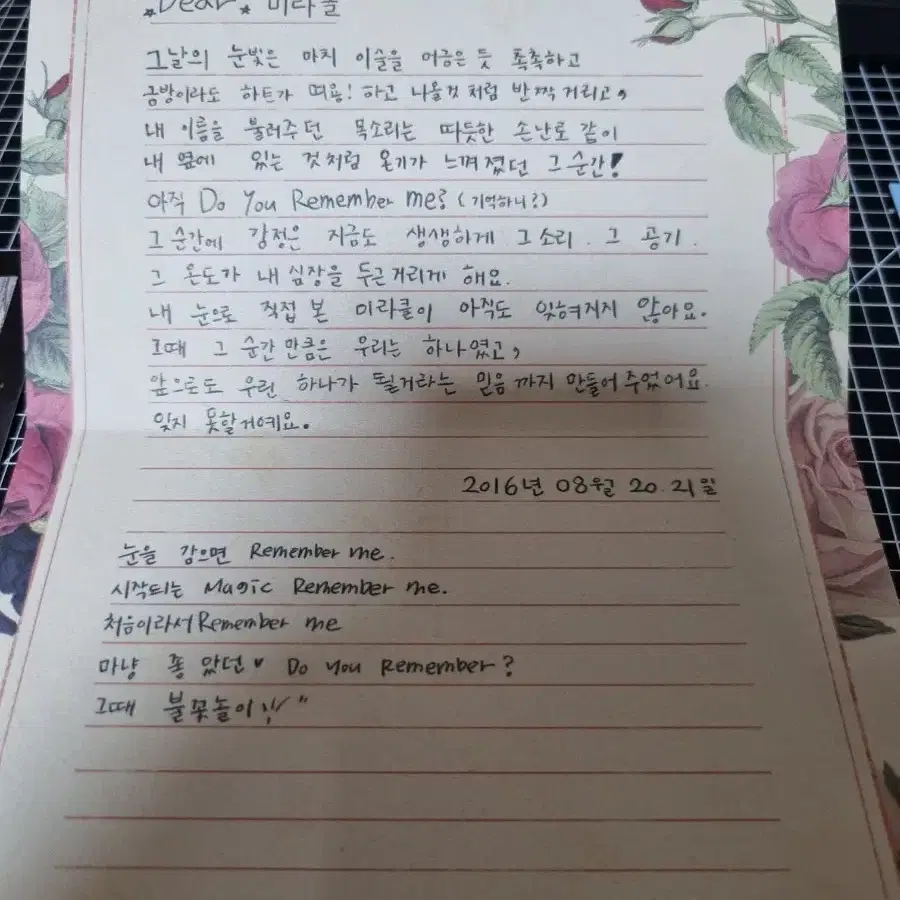 Dear 미라클
그날의 눈빛은 마치 이슬을 머금은 듯 촉촉하고
금방이라도 하트가 뾰용! 하고 나올것 처럼 반짝 거리고,
내 이름을 불러주던 목소리는 따듯한 손난로 같이
내 옆에 있는 것처럼 온기가 느껴졌던 그 순간!
아직 Do You Remember me? (기억하니?)
그 순간에 감정은 지금도 생생하게 그 소리. 그 공기.
그 온도가 내 심장을 두근거리게 해요.
내 눈으로 직접 본 미라클이 아직도 잊혀지지 않아요.
그때 그 순간 만큼은 우리는 하나였고,
앞으로도 우린 하나가 될거라는 믿음까지 만들어 주었어요.
잊지 못할거예요.
2016년 08월 20. 21일
눈을 감으면 Remember me.
시작되는 Magic Remember me.
처음이라서 Remember me
마냥 좋았던♥ Do you Remember?
그때 불꽃놀이